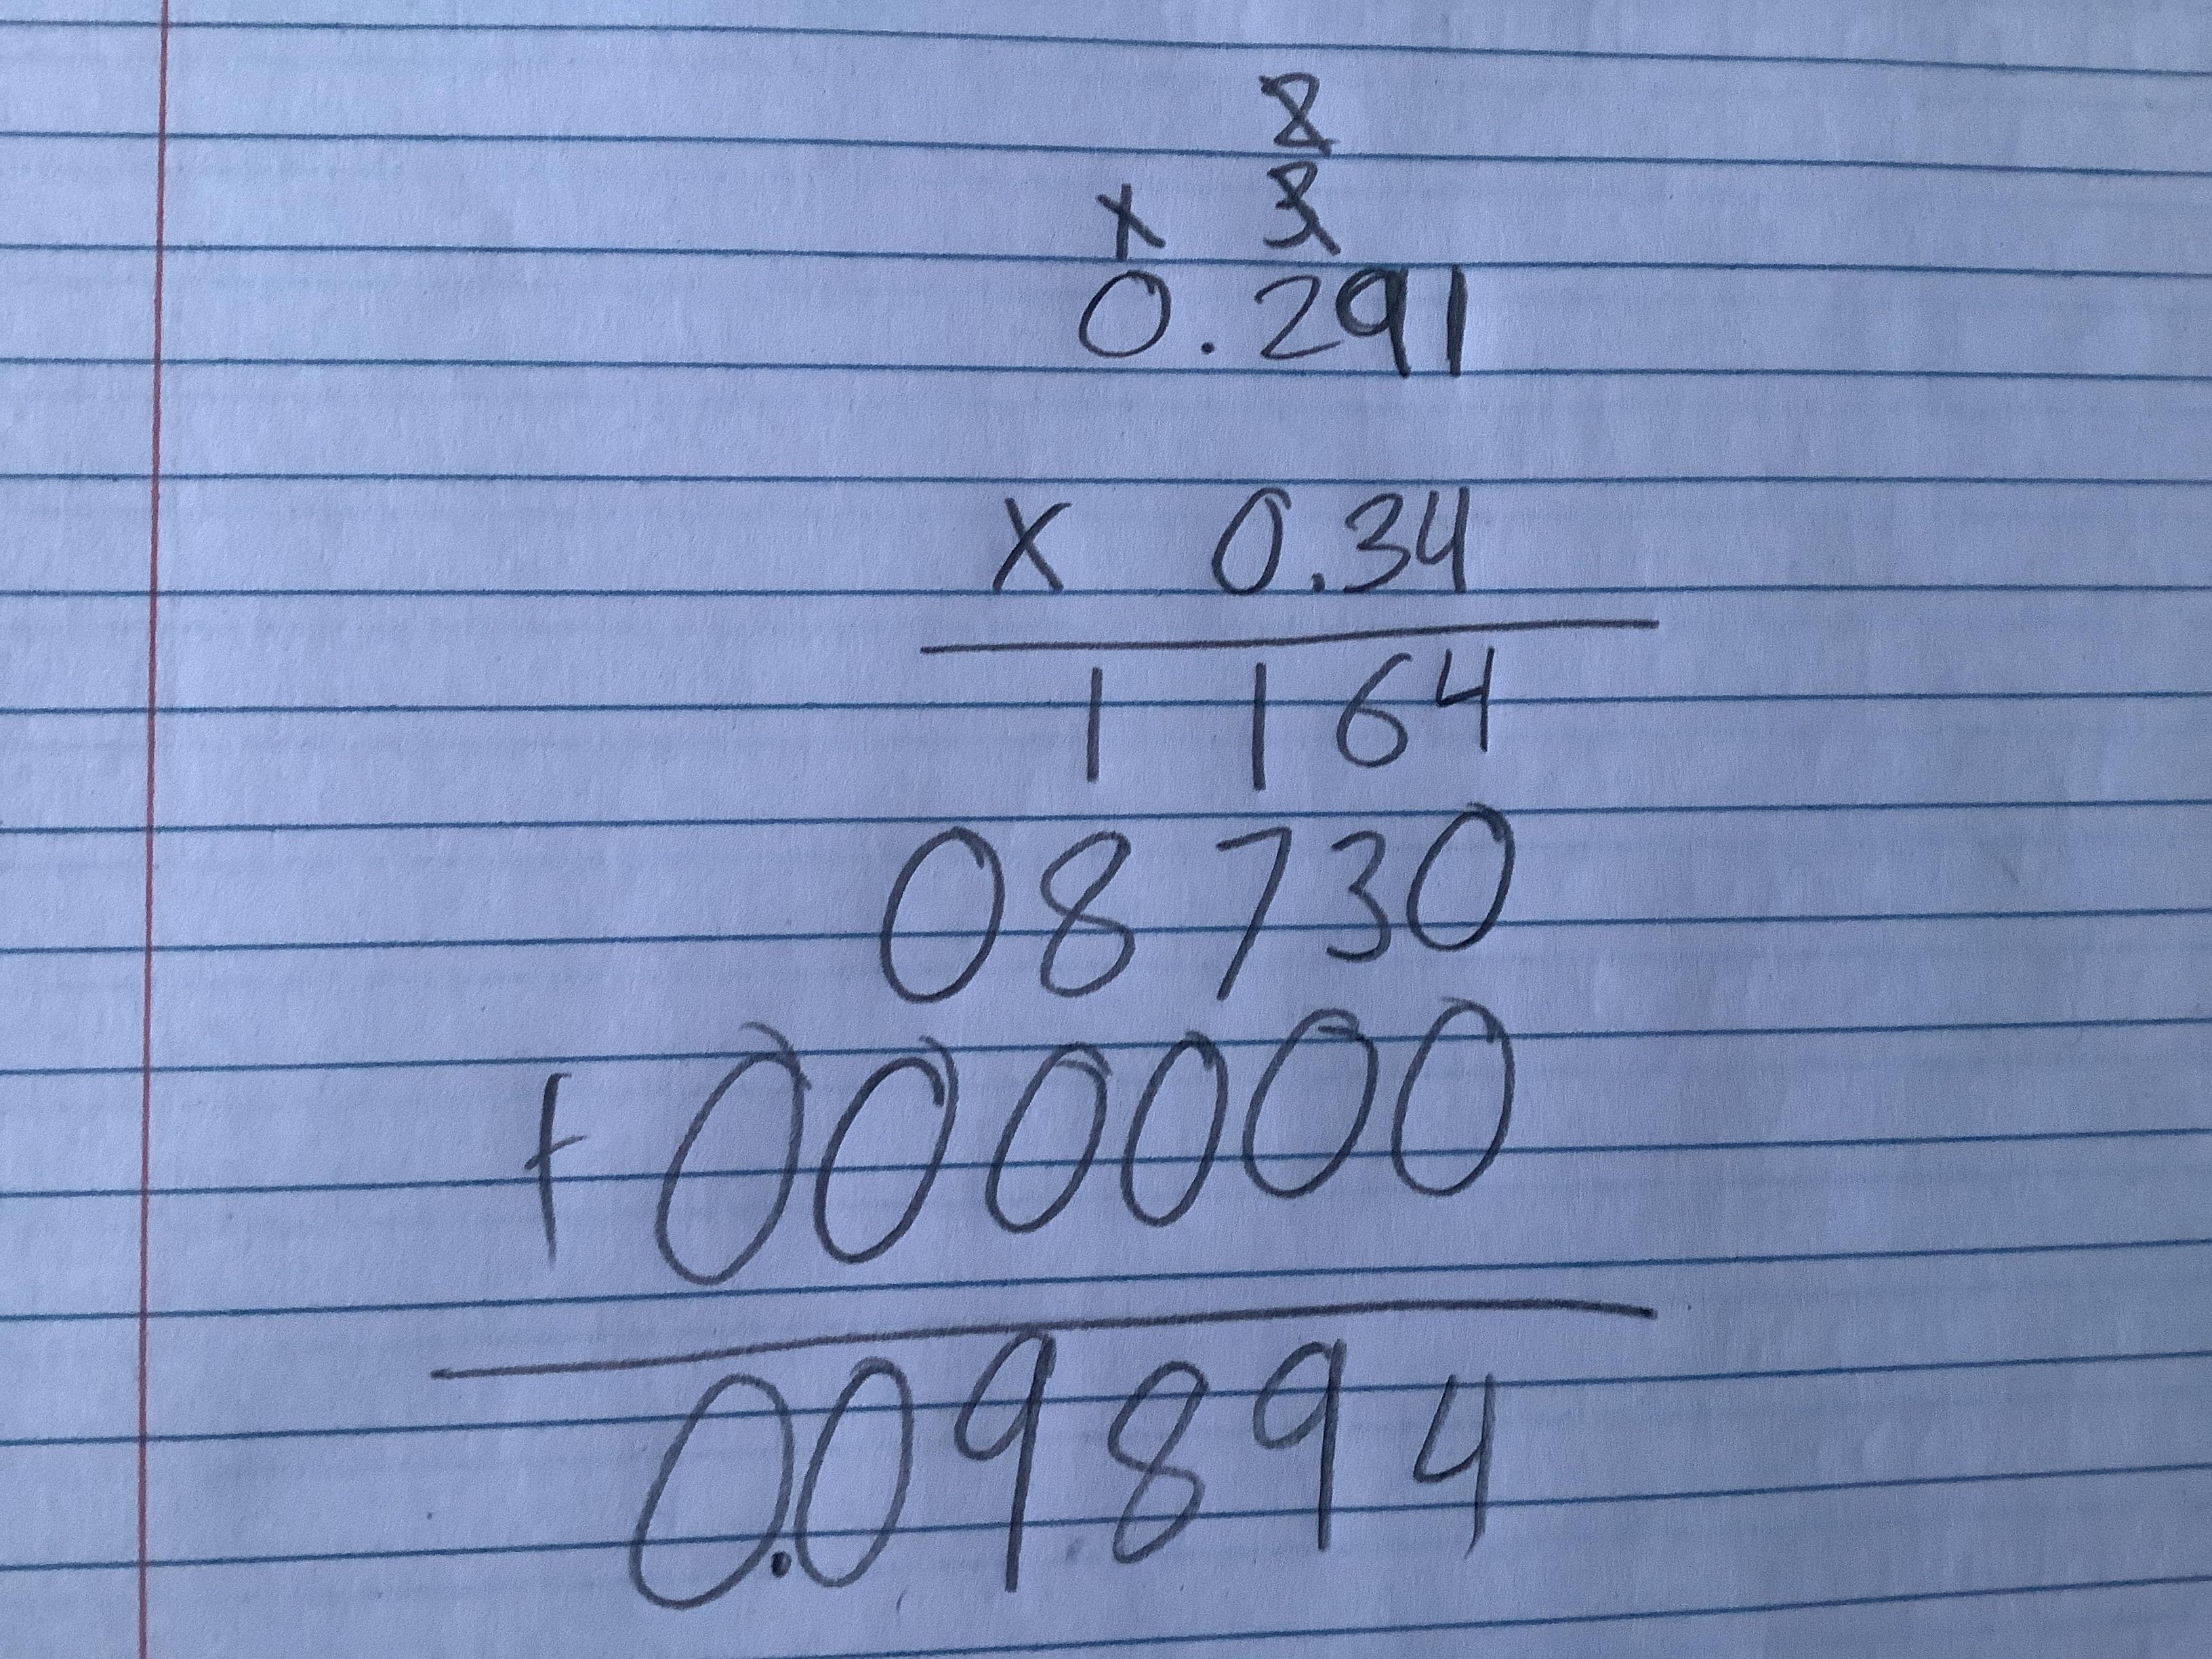 2
1 3
0.291
x 0.34
1164
08730
+ 000000
0.09894